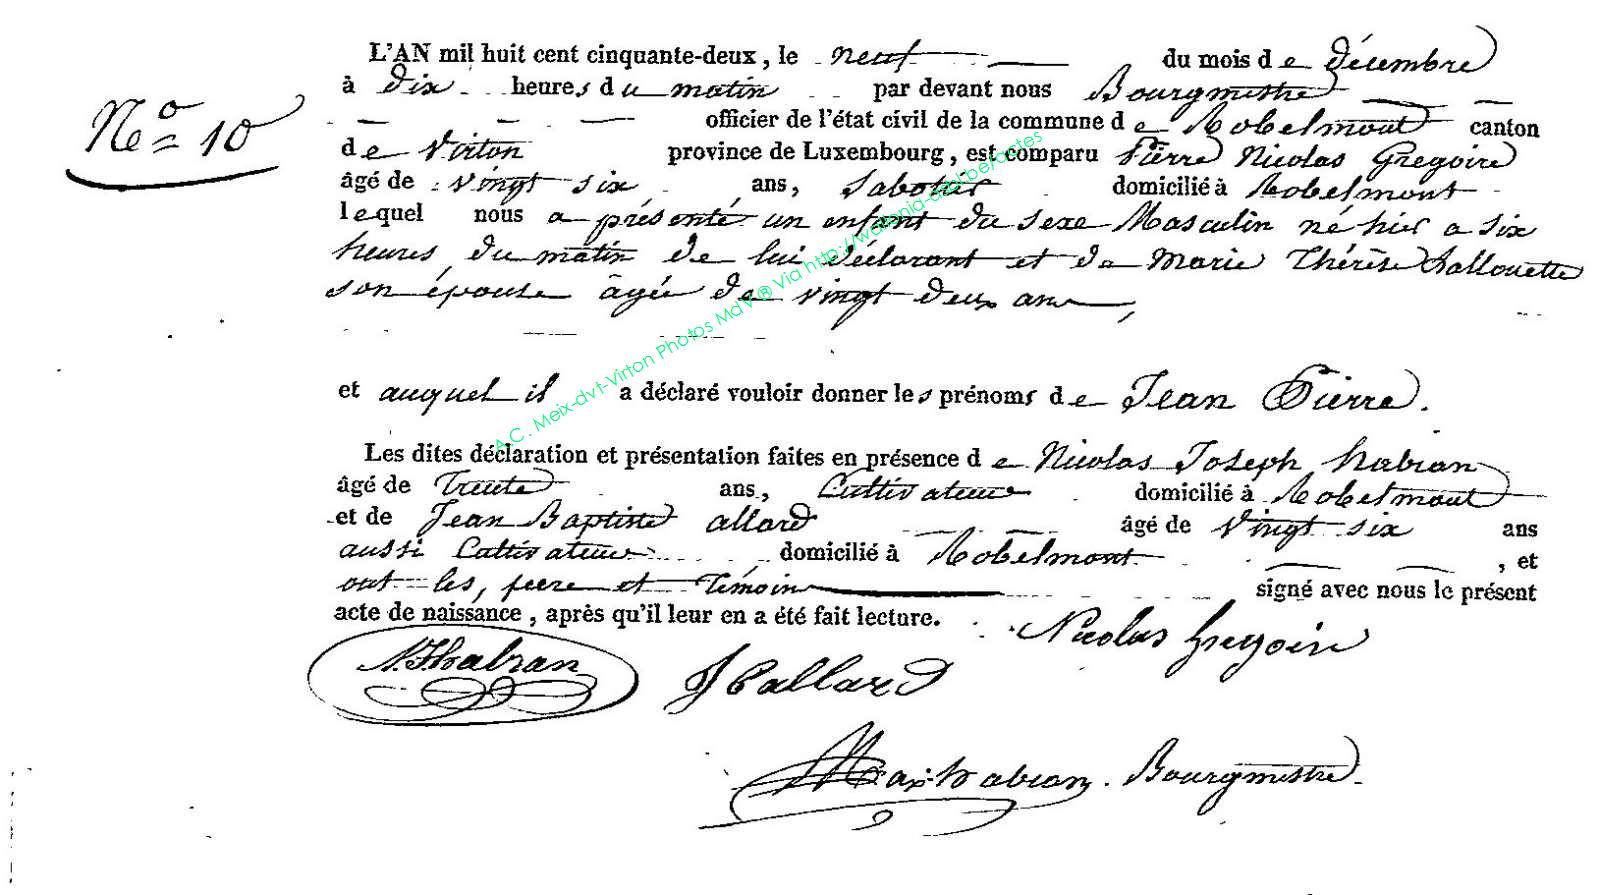 L'AN mil huit cent cinquante-deux, le neuf du mois de décembre
N° 10
à dix heures du matin par devant nous Bourgmestre
officier de l'état civil de la commune de Robelmont canton
de Virton province de Luxembourg, est comparu Pierre Nicolas Gregoire
âgé de vingt six ans, Sabotier domicilié à Robelmont
lequel nous a présenté un enfant du sexe Masculin né hier a six
heures du matin de lui déclarant et de Marie Thérèse Lallouette
son épouse âgée de vingt deux ans,
et auquel il a déclaré vouloir donner les prénoms de Jean Pierre.
Les dites déclaration et présentation faites en présence de Nicolas Joseph habran
âgé de Trente ans, Cultivateur domicilié à Robelmont
et de Jean Baptiste allard âgé de vingt six ans
aussi Cultivateur domicilié à Robelmont , et
ont les, pere et Témoin signé avec nous le présent
acte de naissance, après qu'il leur en a été fait lecture.
Nicolas Gregoire
N.J habran
J B allard
habran. Bourgmestre.
A.C. Meix-dvt-Virton Photos MdV® Via http://wallonia-dabl.be/actes